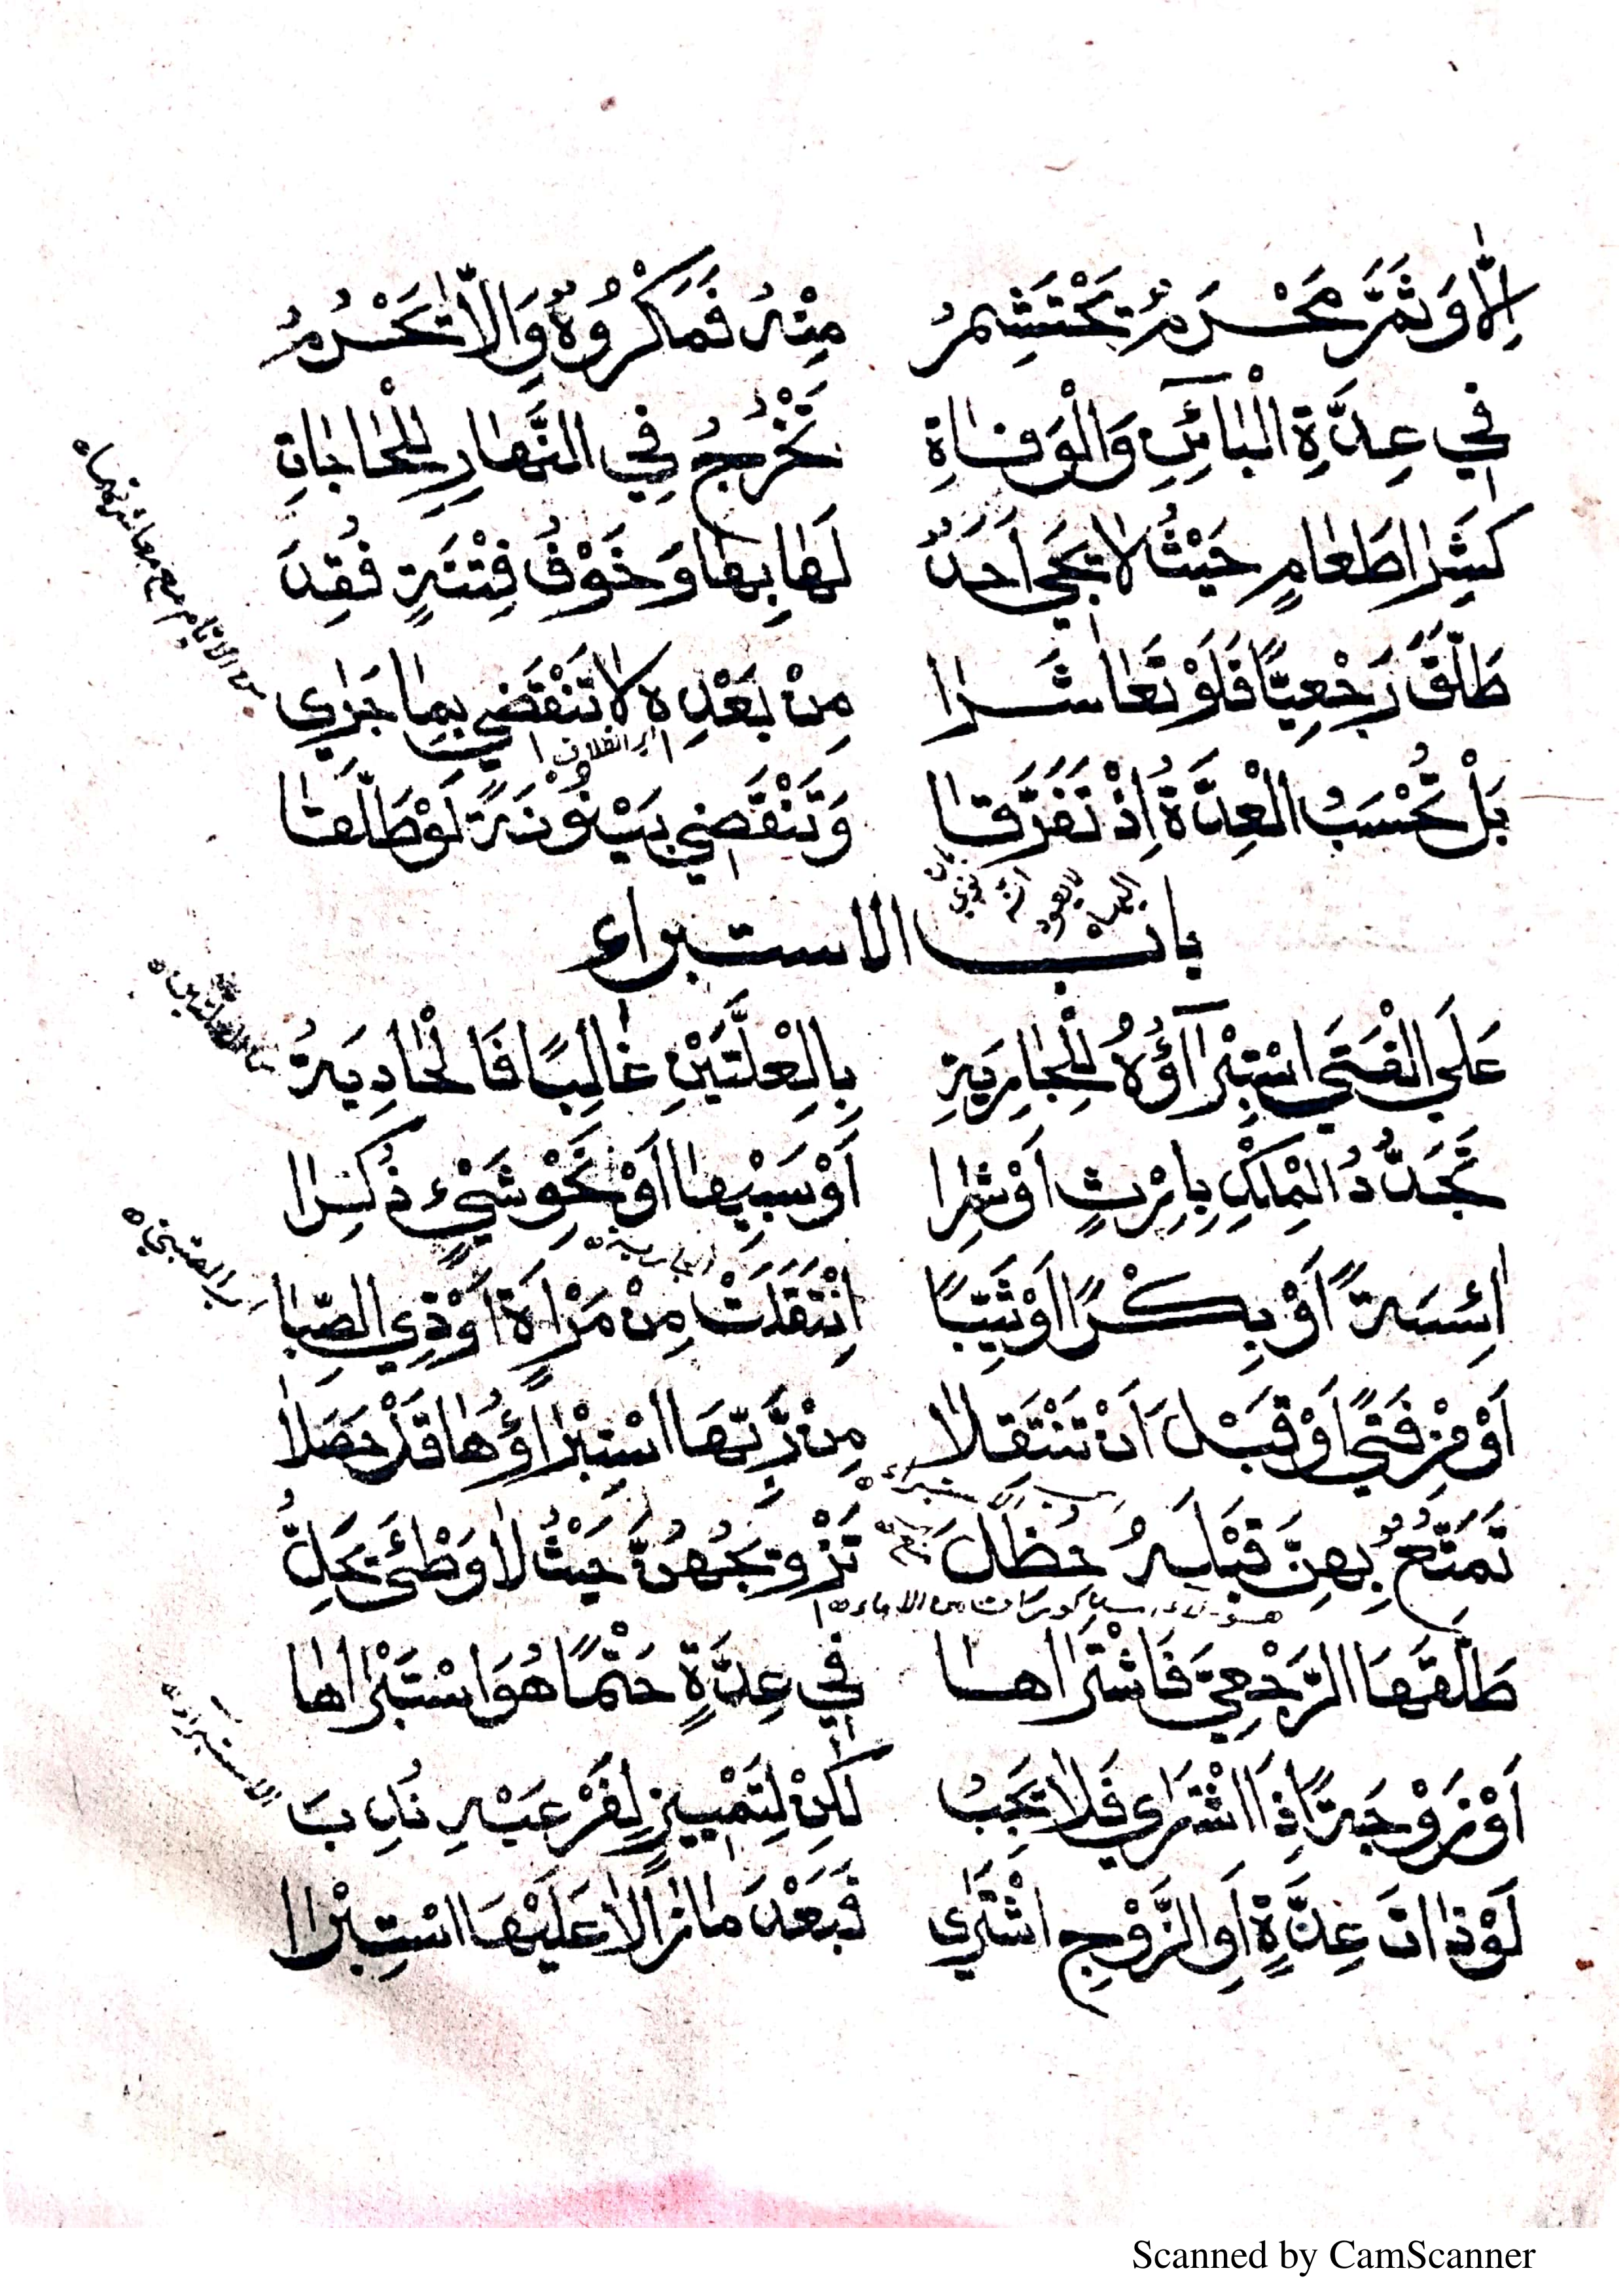 اِلَّا وَثَمَّ مَحْرَمٌ تَحْتَشِمُ مِنْهُ فَمَكْرُوْهٌ وَالَّا تَحْرُمُ
فِي عِدَّةِ الْبَائِنِ وَالْوَفَاةِ تَخْرُجُ فِي النَّهَارِ لِلْحَاجَاتِ
كَشِرَا طَعَامٍ حَيْثُ لَا يَجِي اَحَدٌ لَهَا بِهَا وَخَوْفُ فِتْنَةٍ فُقِدَ
طَلَّقَ رَجْعِيًّا فَلَوْ تَعَاشَرَا مِنْ بَعْدِهِ لَا تَنْقَضِي بِمَا جَرَاي
اي الطلاق
بَلْ تُحْسَبُ الْعِدَّةُ اِذْ تَفَرَّقَا وَتَنْقَضِي بَيْنُوْنَةً لَوْ طَلَّقَا
بابُ الاستبراء
عَلَى الْفَتَى اسْتِبْرَآؤُهُ لِلْجَارِيَةِ بِالْعِلَّتَيْنِ غَالِبًا فَالْحَادِيَةُ
تَجَدُّدُ الْمِلْكِ بِاِرْثٍ اَوْ شِرَا اَوْ سَبْيِهَا اَوْ نَحْوِ شَيْءٍ ذُكِرَا
اي الجارية
اٰئِسَةً اَوْ بِكْرًا اَوْ ثَيِّبًا انْتَقَلَتْ مِنْ مَرْاَةٍ اَوْ ذِي الصِّبَا
اي الصبي
اَوْ مِنْ فَتًى اَوْ قَبْلَ اَنْ تَنْتَقِلَا مِنْ رَبِّهَا اسْتِبْرَاؤُهَا قَدْ حَصَلَا
تَمَتُّعٌ بِهِنَّ قَبْلَهُ حُظِلَ تَزْوِيْجُهُنَّ حَيْثُ لَا وَطْئَ يَحِلُّ
طَلَّقَهَا الرَّجْعِيَّ فَاشْتَرَاهَا فِي عِدَّةٍ حَتْمًا هُوَ اسْتَبْرَاهَا
الاستبراء
اَوْ زَوْجَةً اِذَا اشْتَرَاي فَلَا تَجِبُ لٰكِنْ لِتَمْيِيْزٍ لِفَرْعَيْهِ نُدِبَ
لَوْ ذَاتَ عِدَّةٍ اَوِ الزَّوْجِ اشْتَرٰي فَبَعْدَ مَا زَالَا عَلَيْهَا اسْتِبْرَا
Scanned by CamScanner